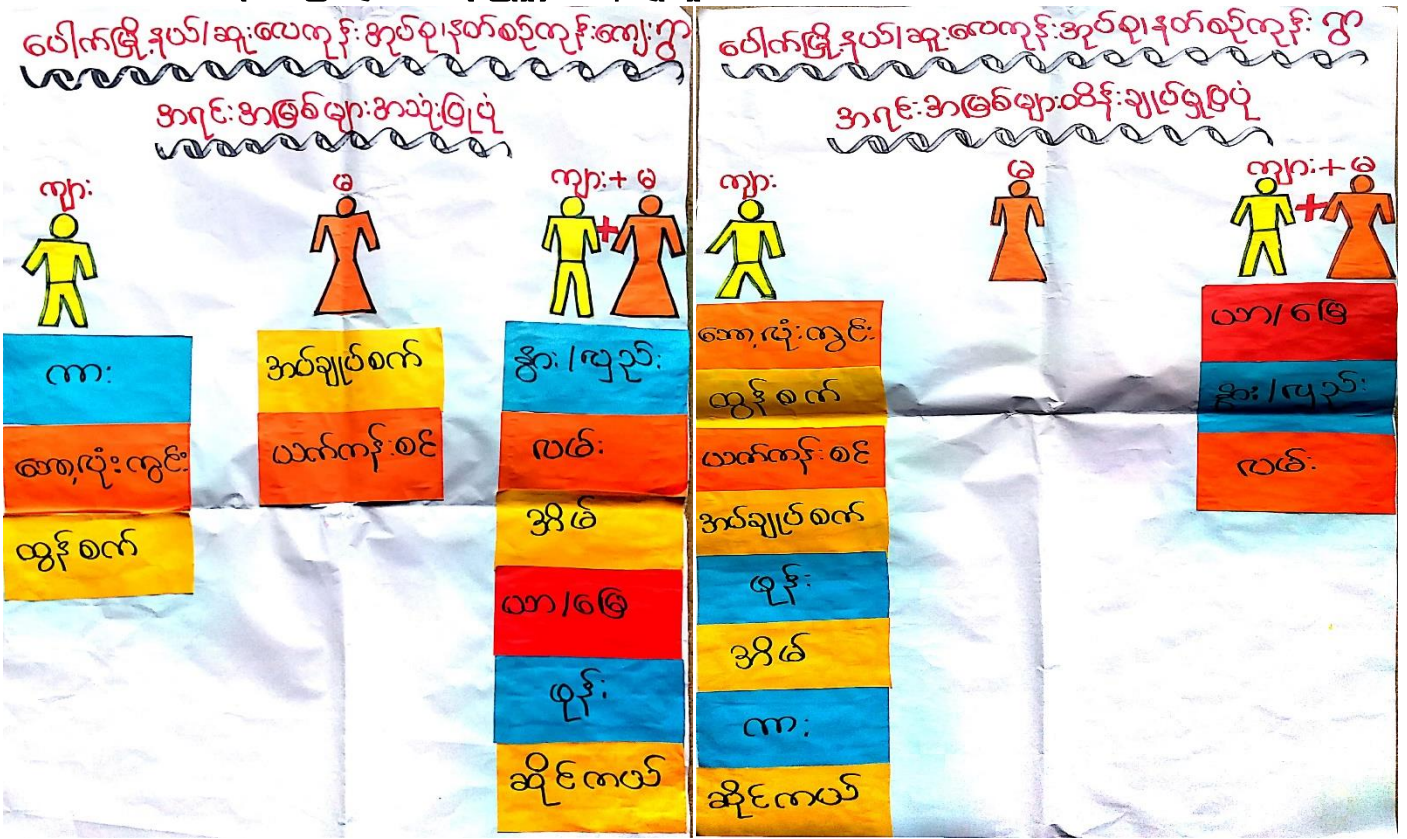 ပေါက်မြို့နယ်/ဆူးလေကုန်းအုပ်စု၊နတ်စဉ်ကုန်းကျေးရွာ
အရင်းအမြစ်များအသုံးပြုပုံ
ကျား
မ
ကျား+မ
ကား
ဘော့လုံးကွင်း
ထွန်စက်
အပ်ချုပ်စက်
ယက်ကန်းစင်
နွား/လှည်း
လမ်း
အိမ်
ယာ/မြေ
ဖုန်း
ဆိုင်ကယ်
ပေါက်မြို့နယ်/ဆူးလေကုန်းအုပ်စု၊နတ်စဉ်ကုန်းရွာ
အရင်းအမြစ်များထိန်းချုပ်မှုပြပုံ
ကျား
မ
ကျား+မ
ဘော့လုံးကွင်း
ထွန်စက်
ယက်ကန်းစင်
အပ်ချုပ်စက်
ဖုန်း
အိမ်
ကား
ဆိုင်ကယ်
ယာ/မြေ
နွား/လှည်း
လမ်း